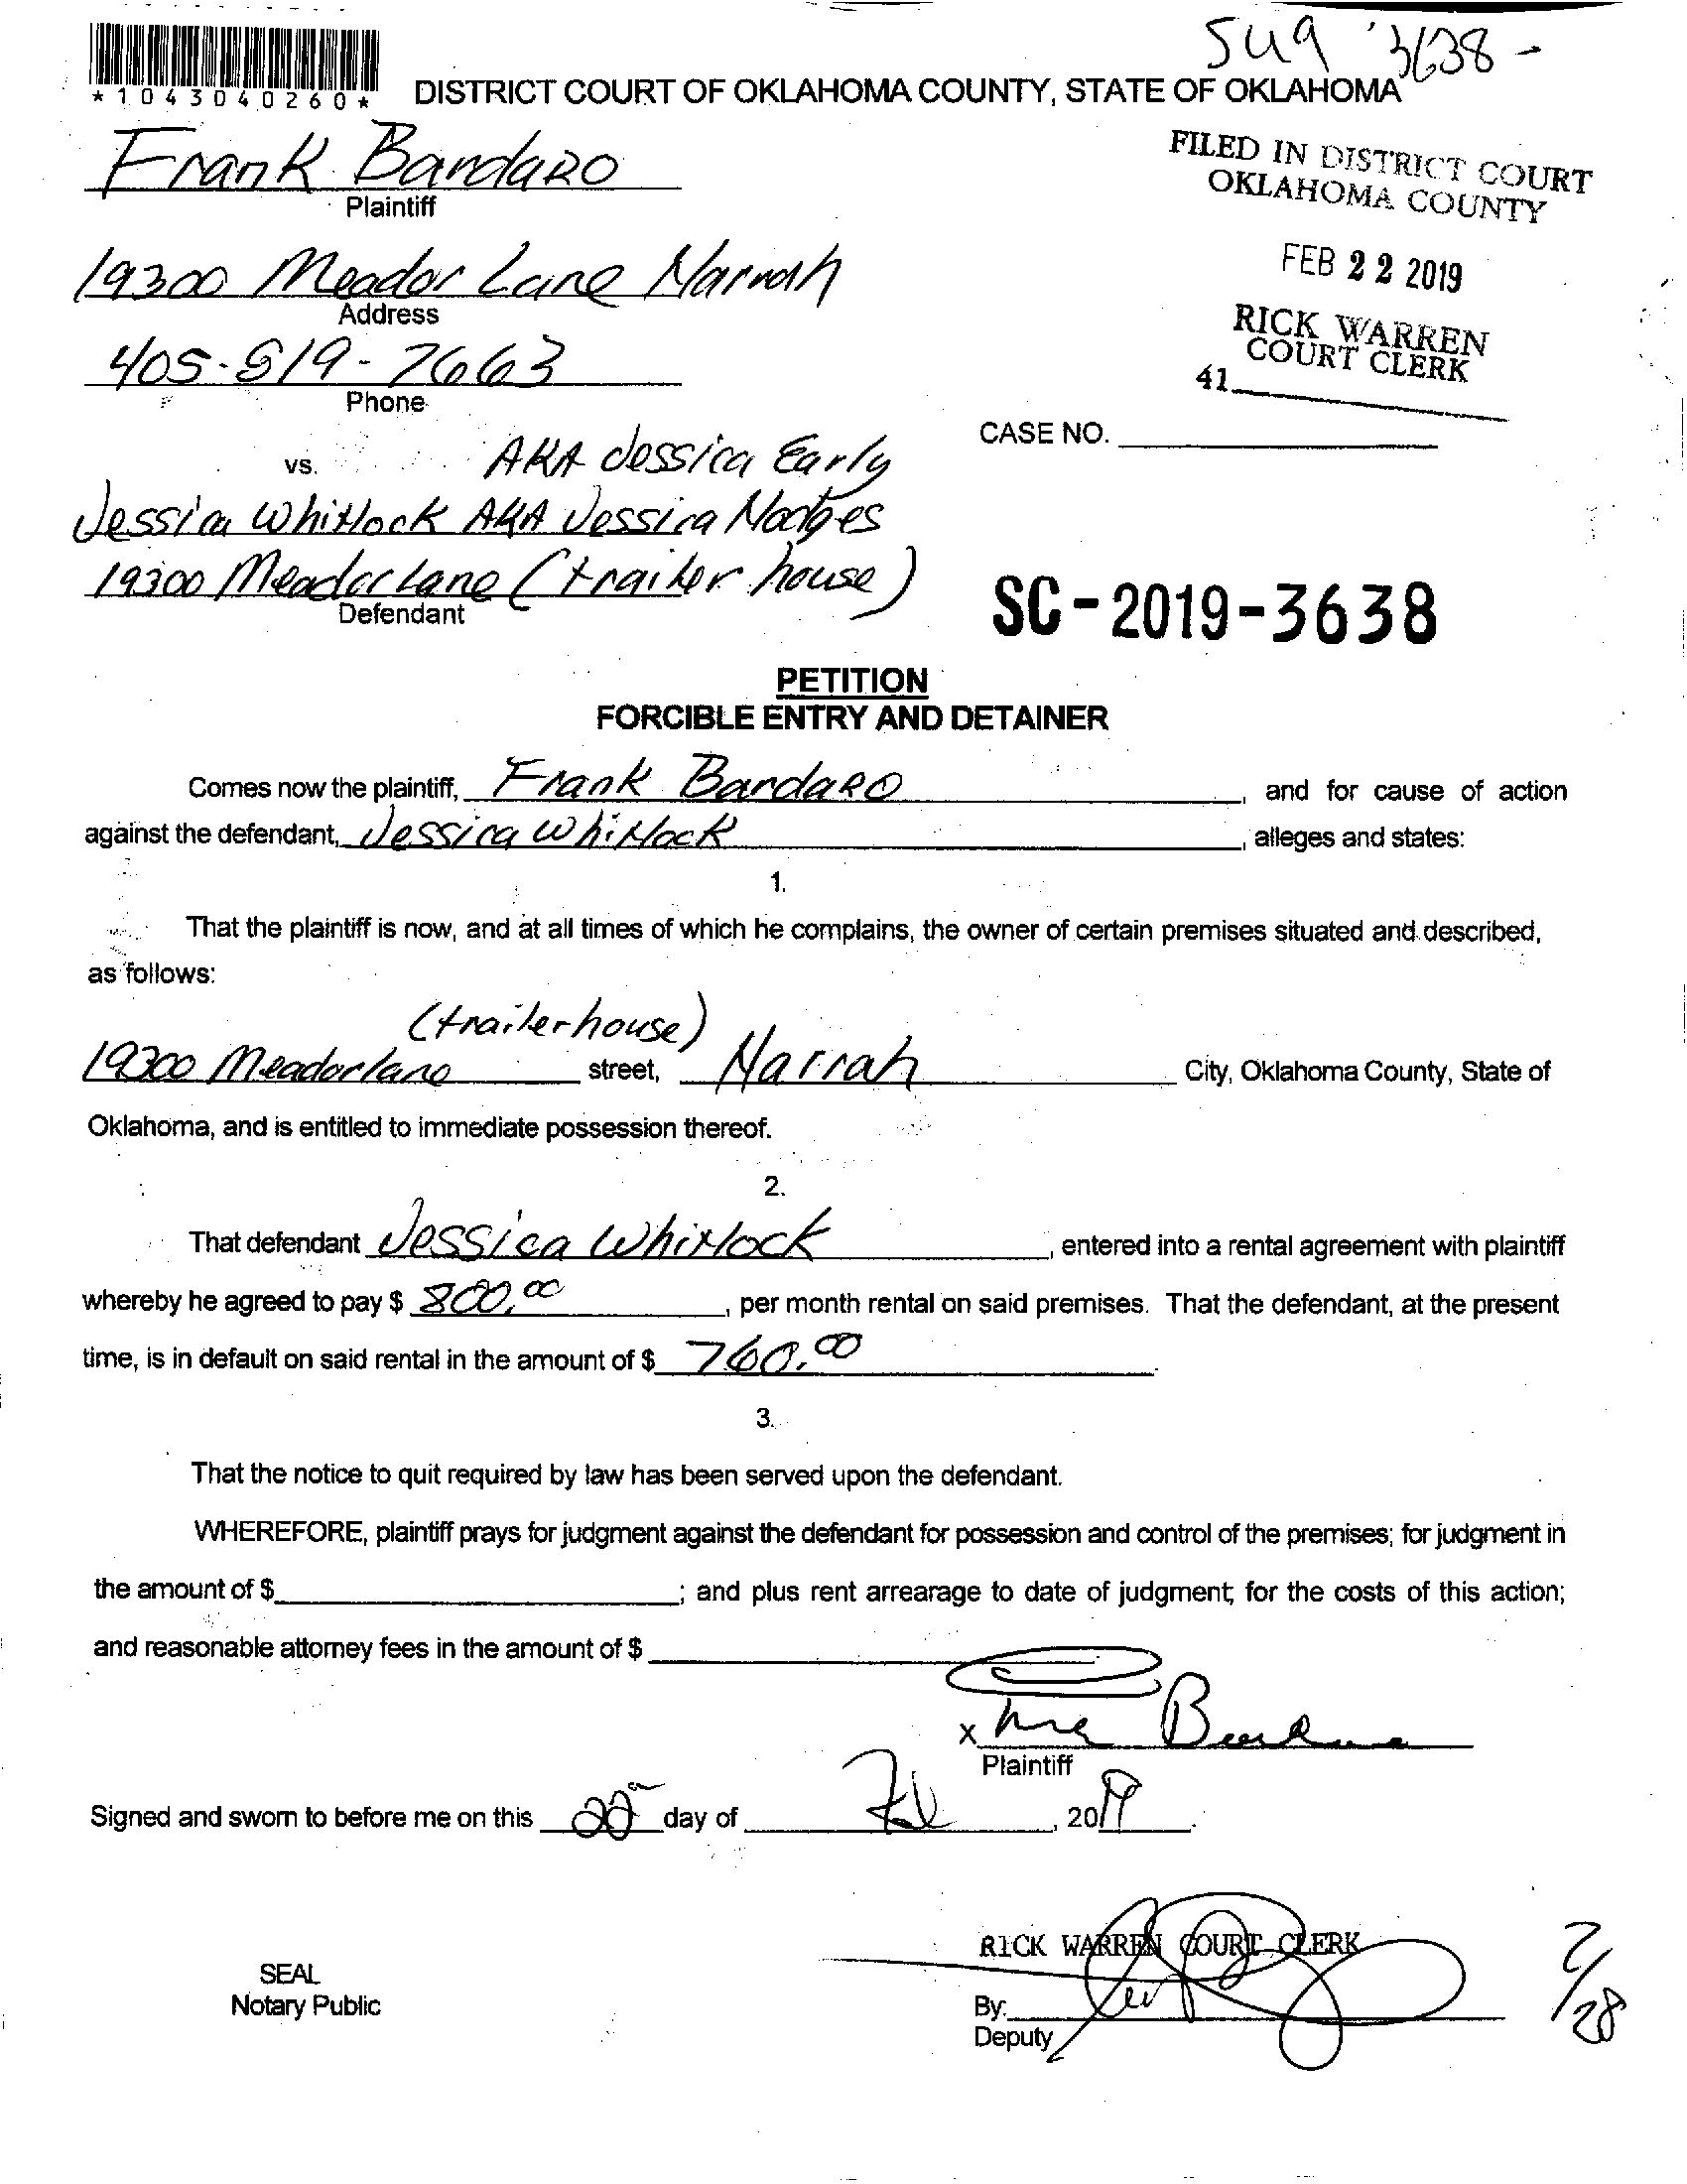 5419 3638 -
*1043040260*
DISTRICT COURT OF OKLAHOMA COUNTY, STATE OF OKLAHOMA
Frank Bardaro
Plaintiff
FILED IN DISTRICT COURT
OKLAHOMA COUNTY
FEB 22 2019
RICK WARREN
COURT CLERK
41
19300 Meador Lane Harrah
Address
405-519-7663
Phone
CASE NO.
vs. AKA Jessica Early
Jessica Whitlock AKA Jessica Hodges
19300 Meador Lane (trailer house)
Defendant
SC-2019-3638
PETITION
FORCIBLE ENTRY AND DETAINER
Comes now the plaintiff, Frank Bardaro, and for cause of action
against the defendant, Jessica Whitlock, alleges and states:
1.
That the plaintiff is now, and at all times of which he complains, the owner of certain premises situated and described,
as follows:
(trailer house)
19300 Meador lane street, Harrah City, Oklahoma County, State of
Oklahoma, and is entitled to immediate possession thereof.
2.
That defendant Jessica Whitlock, entered into a rental agreement with plaintiff
whereby he agreed to pay $ 800.00, per month rental on said premises. That the defendant, at the present
time, is in default on said rental in the amount of $ 760.00.
3.
That the notice to quit required by law has been served upon the defendant.
WHEREFORE, plaintiff prays for judgment against the defendant for possession and control of the premises; for judgment in
the amount of $ ; and plus rent arrearage to date of judgment; for the costs of this action;
and reasonable attorney fees in the amount of $
x
Plaintiff
Signed and sworn to before me on this 22 day of Feb, 2019.
RICK WARREN COURT CLERK
SEAL
Notary Public
By:
Deputy
2/28